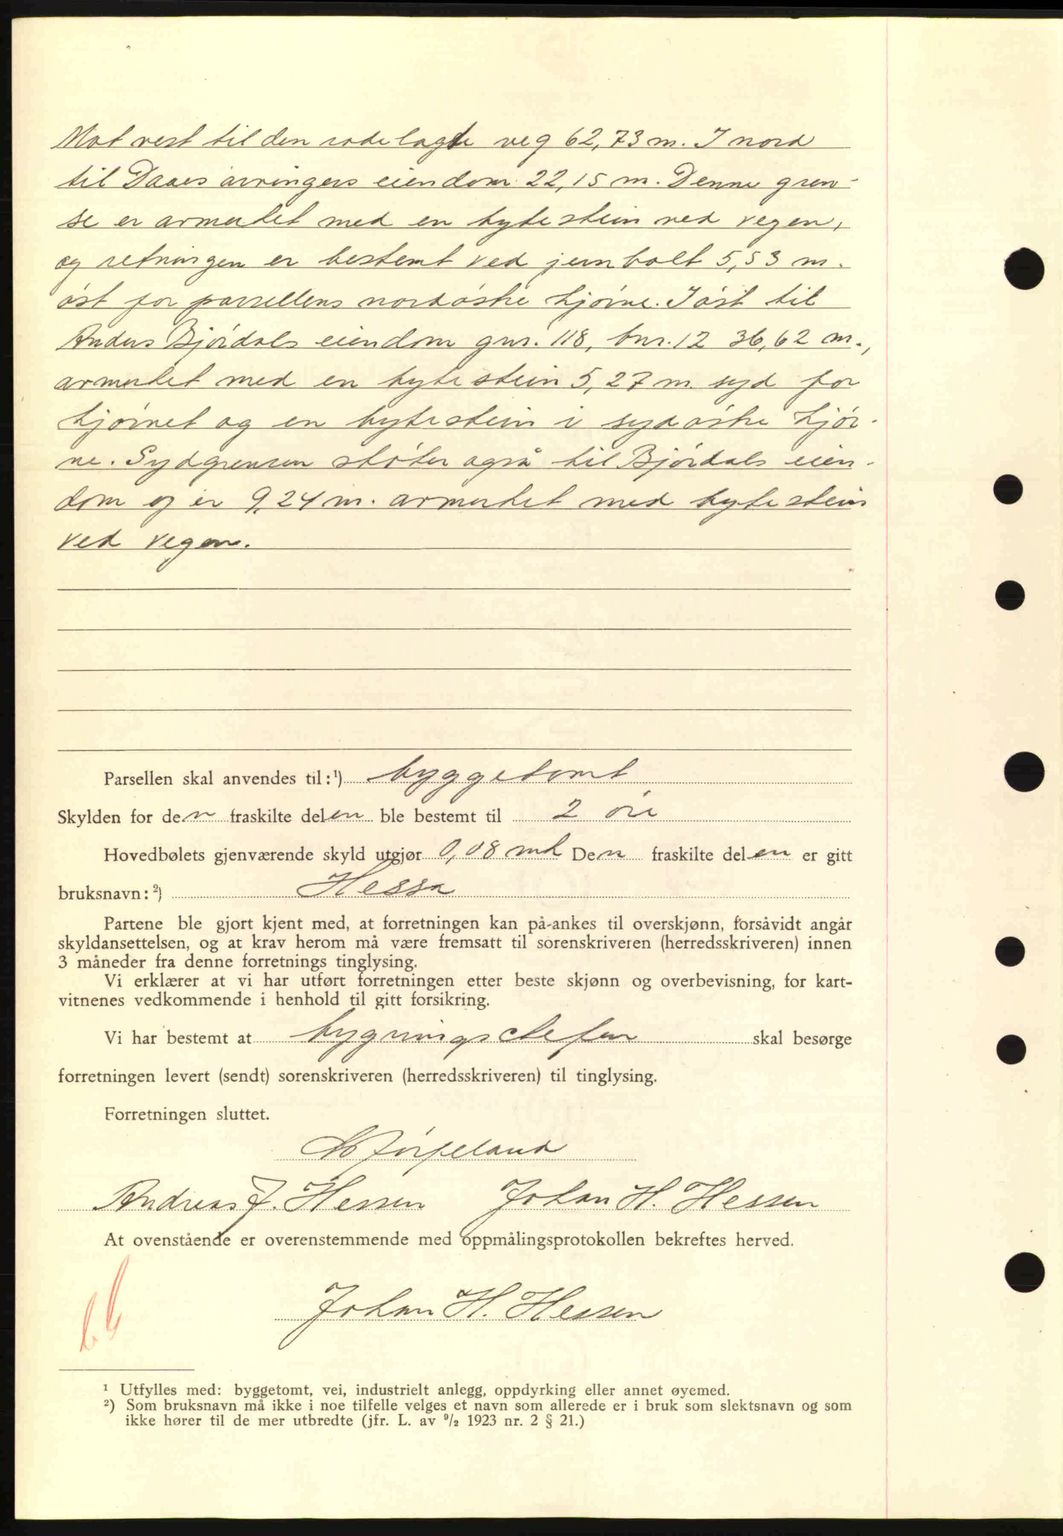 Mot vest til den rodelagte veg 62,73 m. I nord
til Daaes arvingers eiendom 22,15 m. Denne gren-
se er avmerket med en bytestein ved vegen,
og retningen er bestemt ved jernbolt 5,53 m.
øst for parsellens nordøstre hjørne. I øst til
Anders Bjørdals eiendom gnr. 118, bnr. 12 36,62 m.,
avmerket med en bytestein 5,27 m syd for
hjørnet og en bytestein i sydøstre hjør-
ne. Sydgrensen støter også til Bjørdals eien-
dom og er 9,24 m. avmerket med bytestein
ved vegen.
Parsellen skal anvendes til:¹) byggetomt
Skylden for den fraskilte delen ble bestemt til 2 øre
Hovedbølets gjenværende skyld utgjør 0,08 mk Den fraskilte delen er gitt
bruksnavn:²) Hessa
Partene ble gjort kjent med, at forretningen kan på-ankes til overskjønn, forsåvidt angår
skyldansettelsen, og at krav herom må være fremsatt til sorenskriveren (herredsskriveren) innen
3 måneder fra denne forretnings tinglysing.
Vi erklærer at vi har utført forretningen etter beste skjønn og overbevisning, for kart-
vitnenes vedkommende i henhold til gitt forsikring.
Vi har bestemt at bygningschefen skal besørge
forretningen levert (sendt) sorenskriveren (herredsskriveren) til tinglysing.
Forretningen sluttet.
Jørpeland
Andreas J. Hessen Johan H. Hessen
At ovenstående er overenstemmende med oppmålingsprotokollen bekreftes herved.
Johan H. Hessen
¹ Utfylles med: byggetomt, vei, industrielt anlegg, oppdyrking eller annet øyemed.
²) Som bruksnavn må ikke i noe tilfelle velges et navn som allerede er i bruk som slektsnavn og som
ikke hører til de mer utbredte (jfr. L. av ⁹/₂ 1923 nr. 2 § 21.)